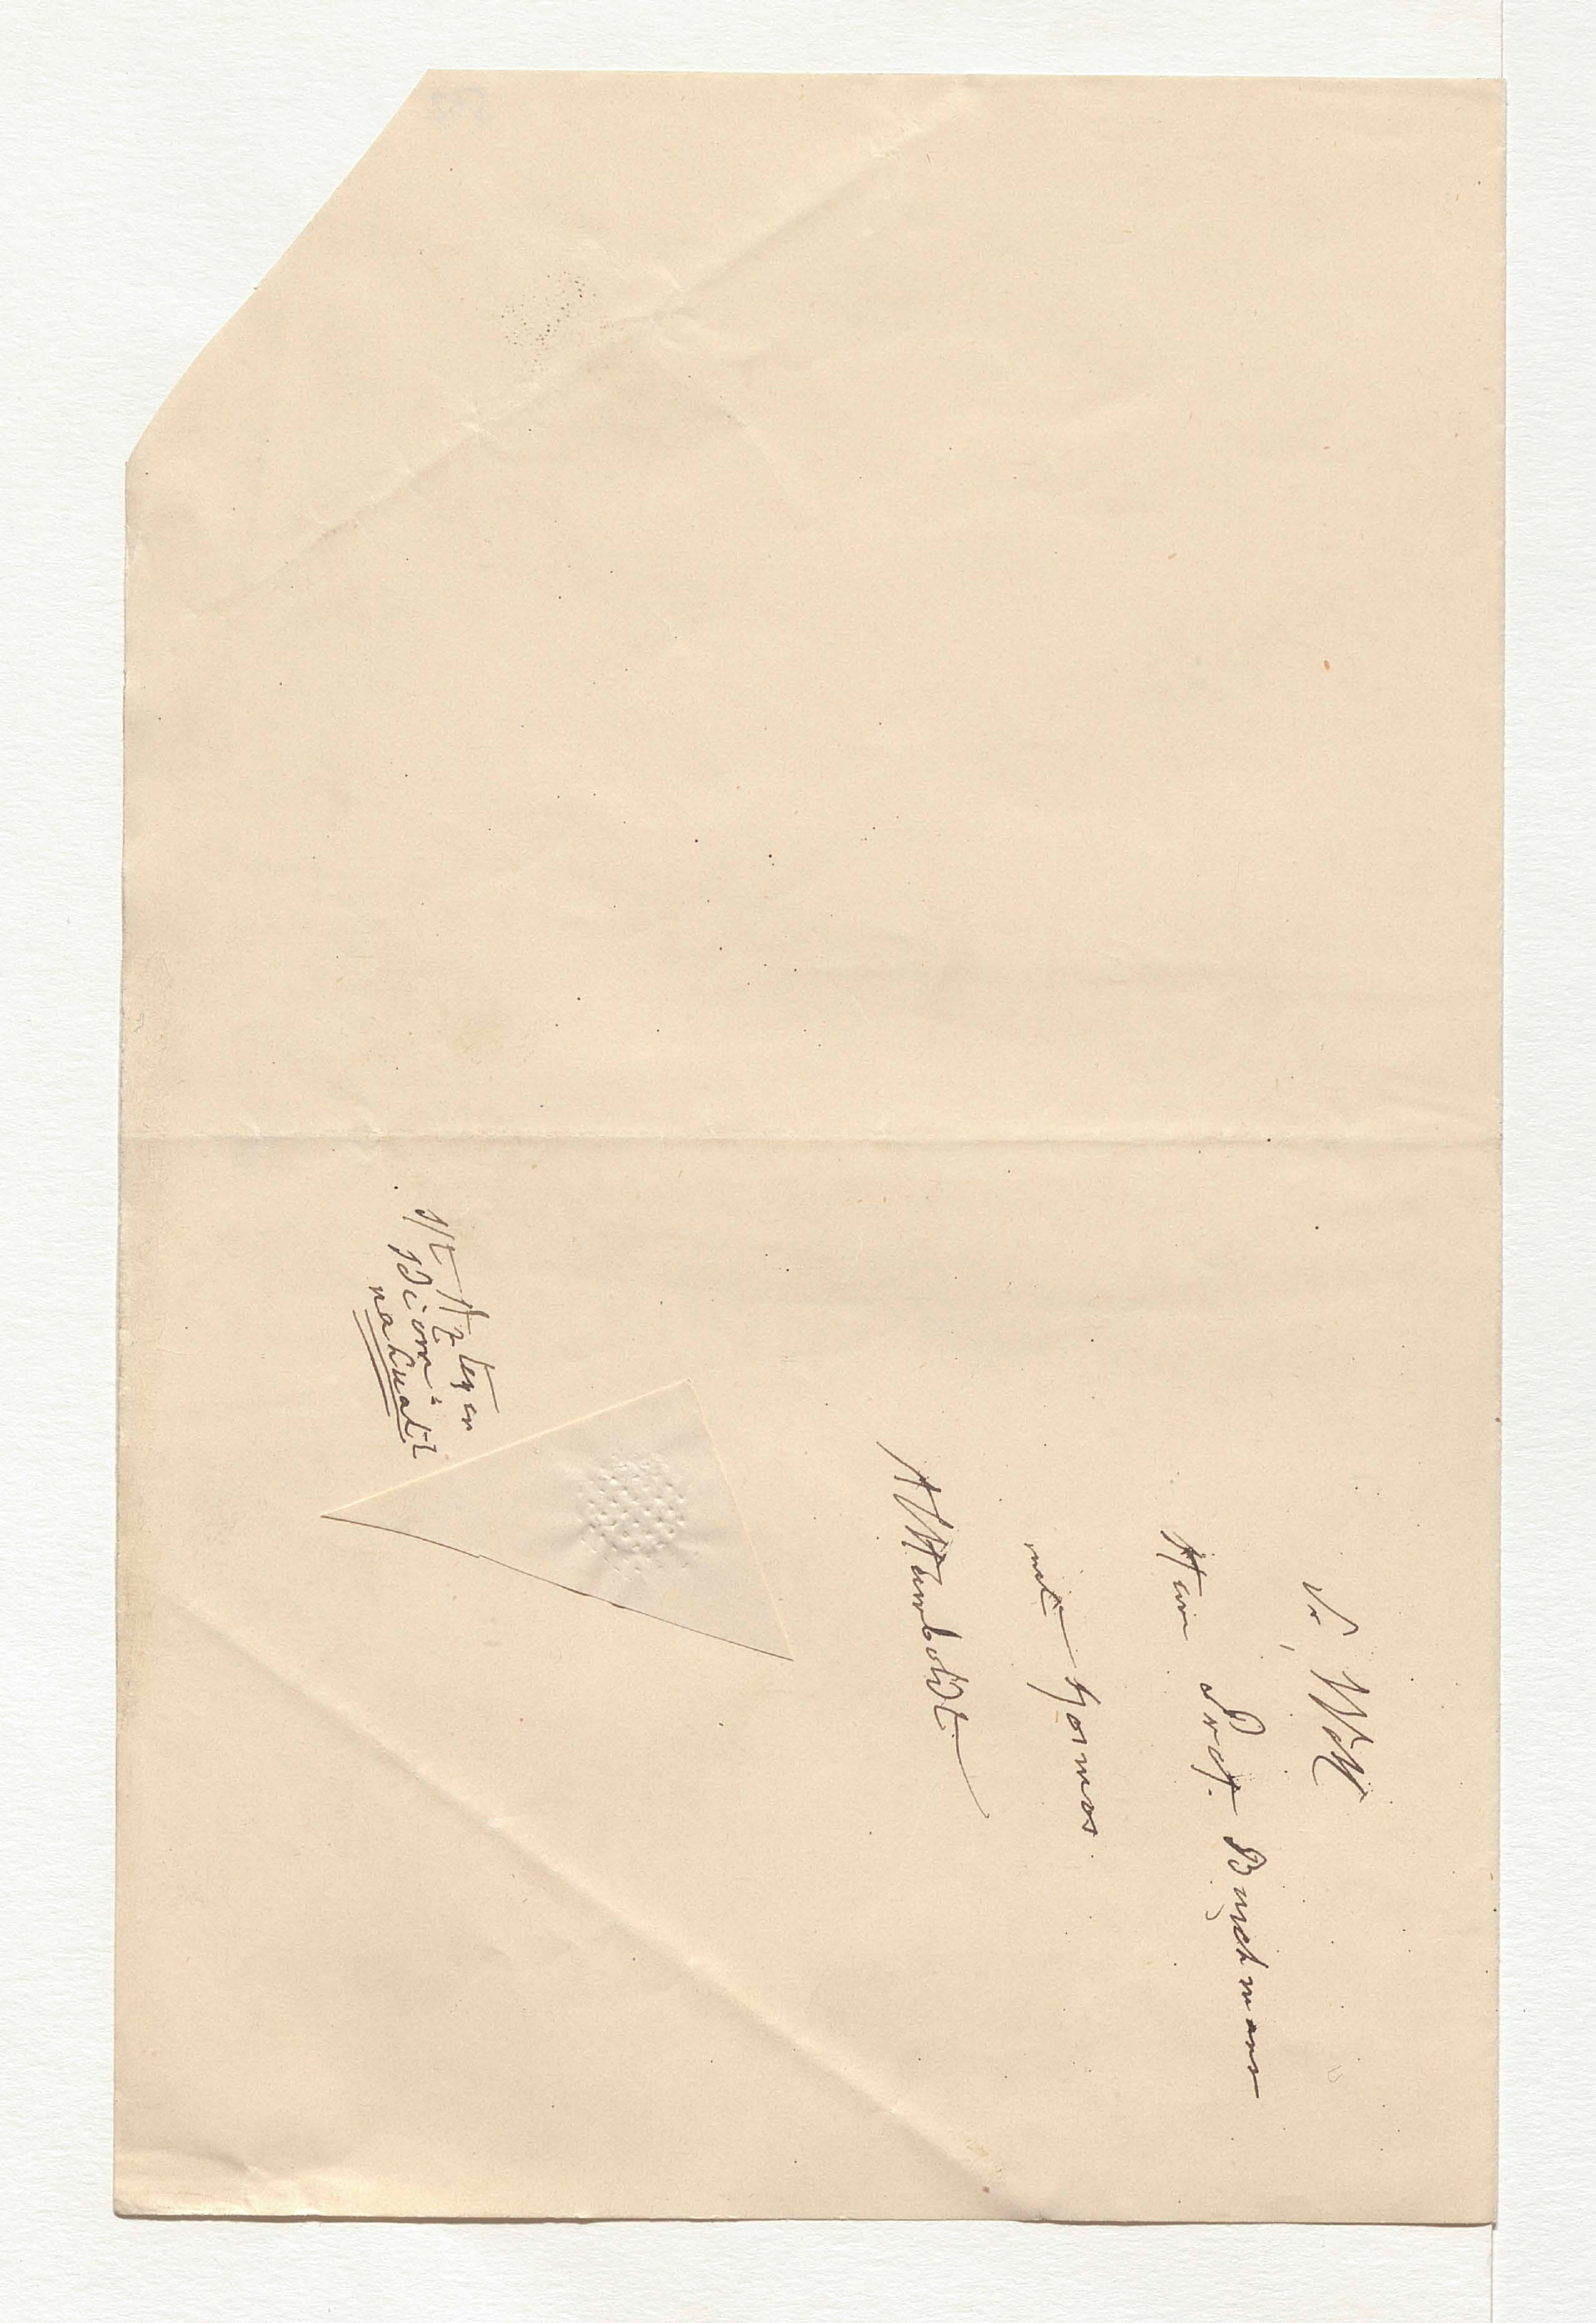 Sr Woll
Herrn Prof. Buschmann
mit Kosmos.
AlHumboldt
ist Azteken
Idiom =
nahuatl